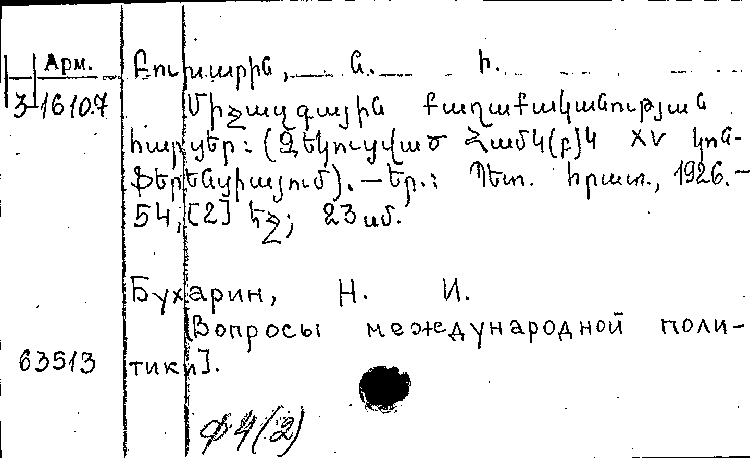 Арм.
Բուխարին, Ն. Ի.
3-16107
Միջազգային քաղաքականության
հարցեր: (Զեկուցված ՀամԿ(բ)Կ XV կոն-
ֆերենցիայում). — Եր.: Պետ. հրատ., 1926. —
54, [2] էջ; 23 սմ.
Бухарин, Н. И.
[Вопросы международной поли-
63513 тики].
ФЧ(2)